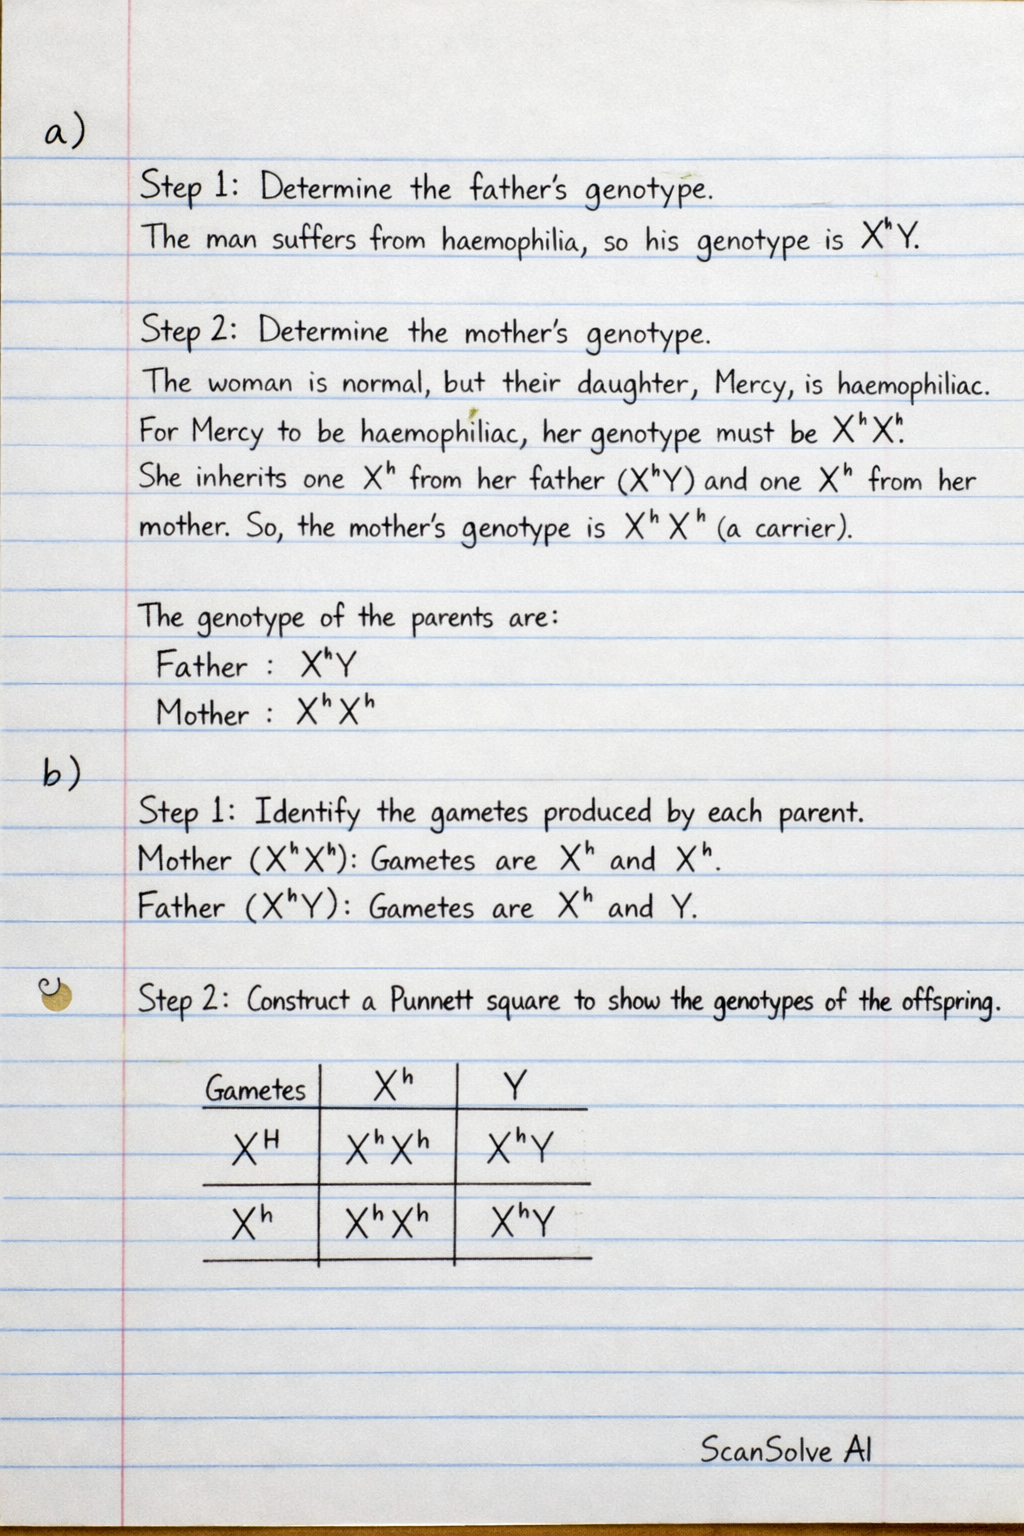 a)
Step 1: Determine the father's genotype.
The man suffers from haemophilia, so his genotype is XʰY.
Step 2: Determine the mother's genotype.
The woman is normal, but their daughter, Mercy, is haemophiliac.
For Mercy to be haemophiliac, her genotype must be XʰXʰ.
She inherits one Xʰ from her father (XʰY) and one Xʰ from her
mother. So, the mother's genotype is Xʰ Xʰ (a carrier).
The genotype of the parents are:
Father : XʰY
Mother : Xʰ Xʰ
b)
Step 1: Identify the gametes produced by each parent.
Mother (XʰXʰ): Gametes are Xʰ and Xʰ.
Father (XʰY): Gametes are Xʰ and Y.
Step 2: Construct a Punnett square to show the genotypes of the offspring.
Gametes Xʰ Y
Xᴴ XʰXʰ XʰY
Xʰ XʰXʰ XʰY
ScanSolve AI